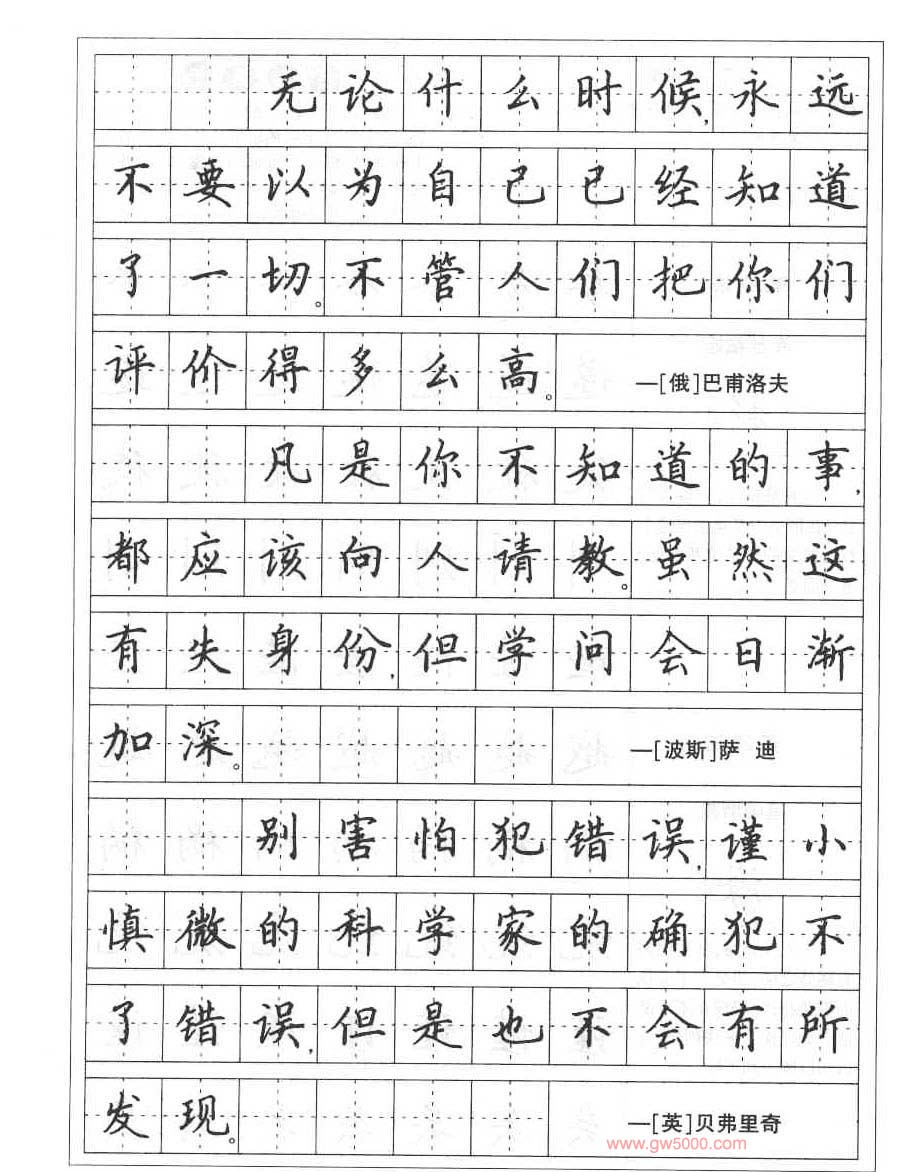 无论什么时候,永远
不要以为自己已经知道
了一切。不管人们把你们
评价得多么高。 —[俄]巴甫洛夫
凡是你不知道的事,
都应该向人请教。虽然这
有失身份,但学问会日渐
加深。 —[波斯]萨 迪
别害怕犯错误,谨小
慎微的科学家的确犯不
了错误,但是也不会有所
发现。 —[英]贝弗里奇
www.gw5000.com